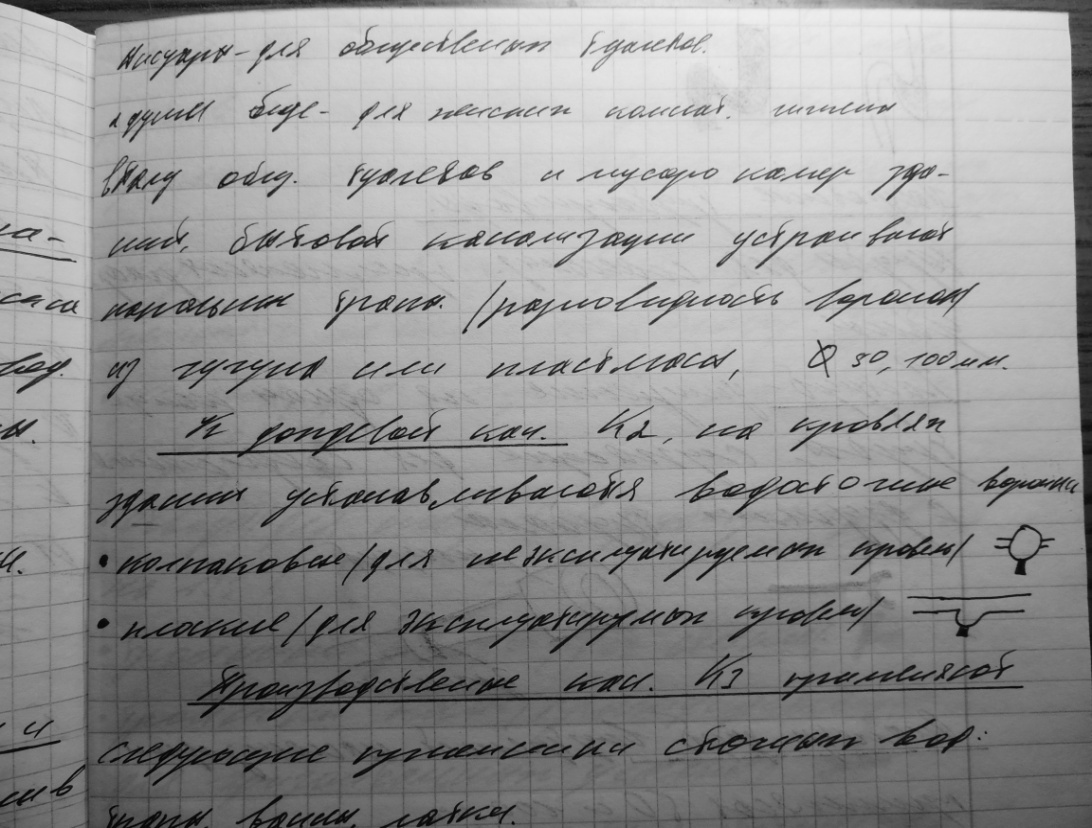 Писуары - для общественных туалетов.
биде - для женских комнат. гигиены
В полу общ. туалетов и мусорокамер зда-
ний, бытовой канализации устраивают
напольные трапы. (разновидность воронок)
из чугуна или пластмассы, Ø 50, 100 мм.
К дождевой кан. К2, на кровлях
здания устанавливаются водосточные воронки
• колпаковые (для неэксплуатируемых кровель)
• плоские (для эксплуатируемых кровель)
Производственные кан. К3 применяют
следующие приемники сточных вод:
трапы, ванны, лотки.